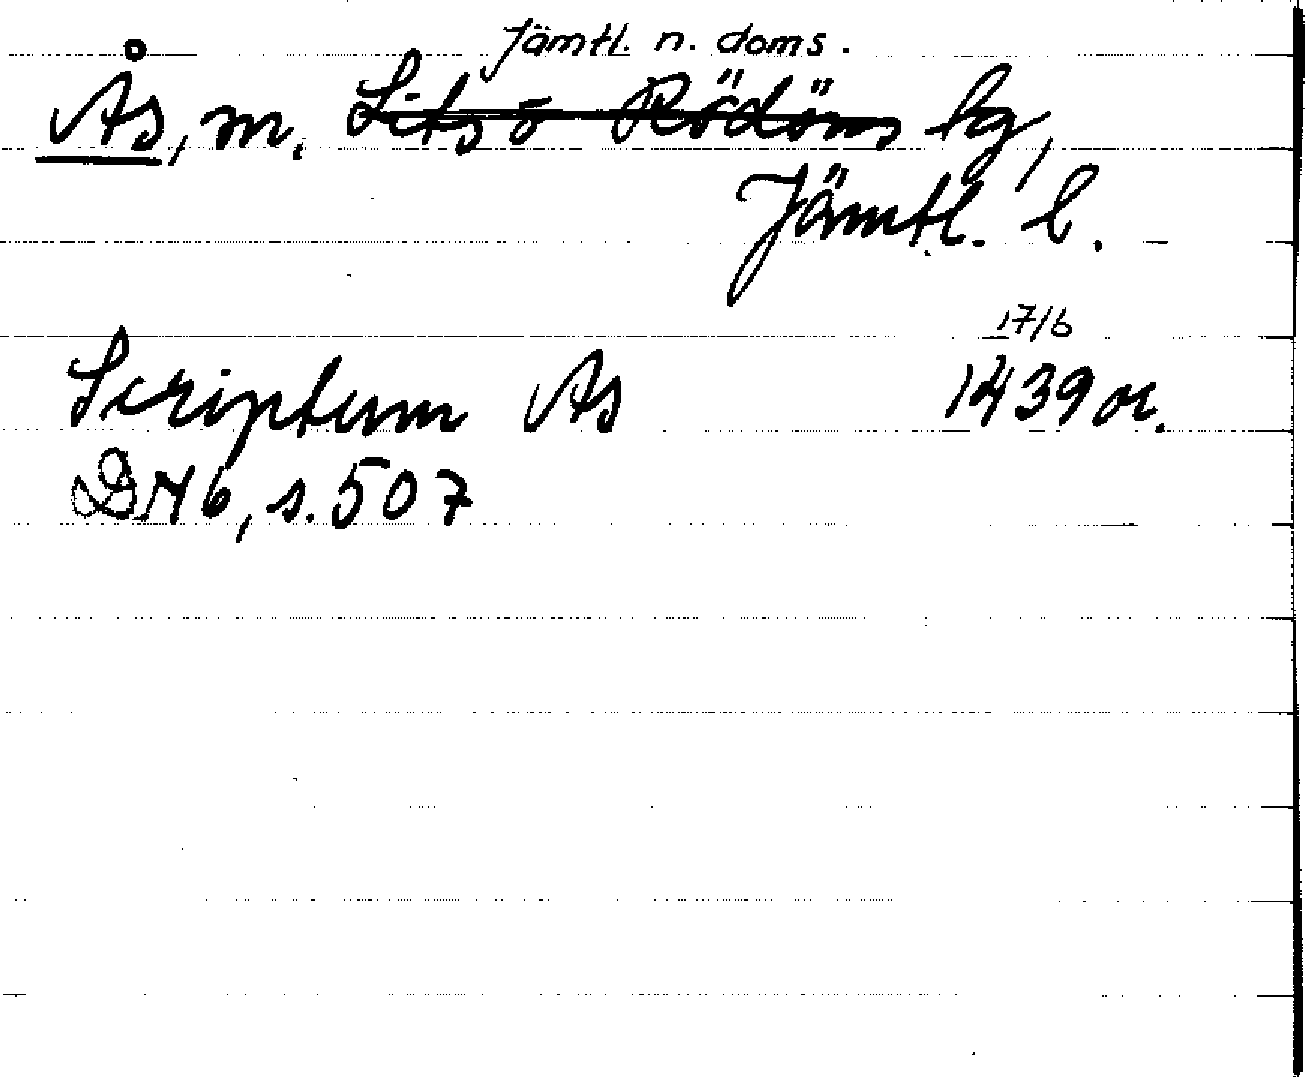 Jämtl. n. doms.
Ås, m. Lits o Rödöns hg,
Jämtl. l.
17/6
Scriptum As 1439 or.
DN 6, s. 507